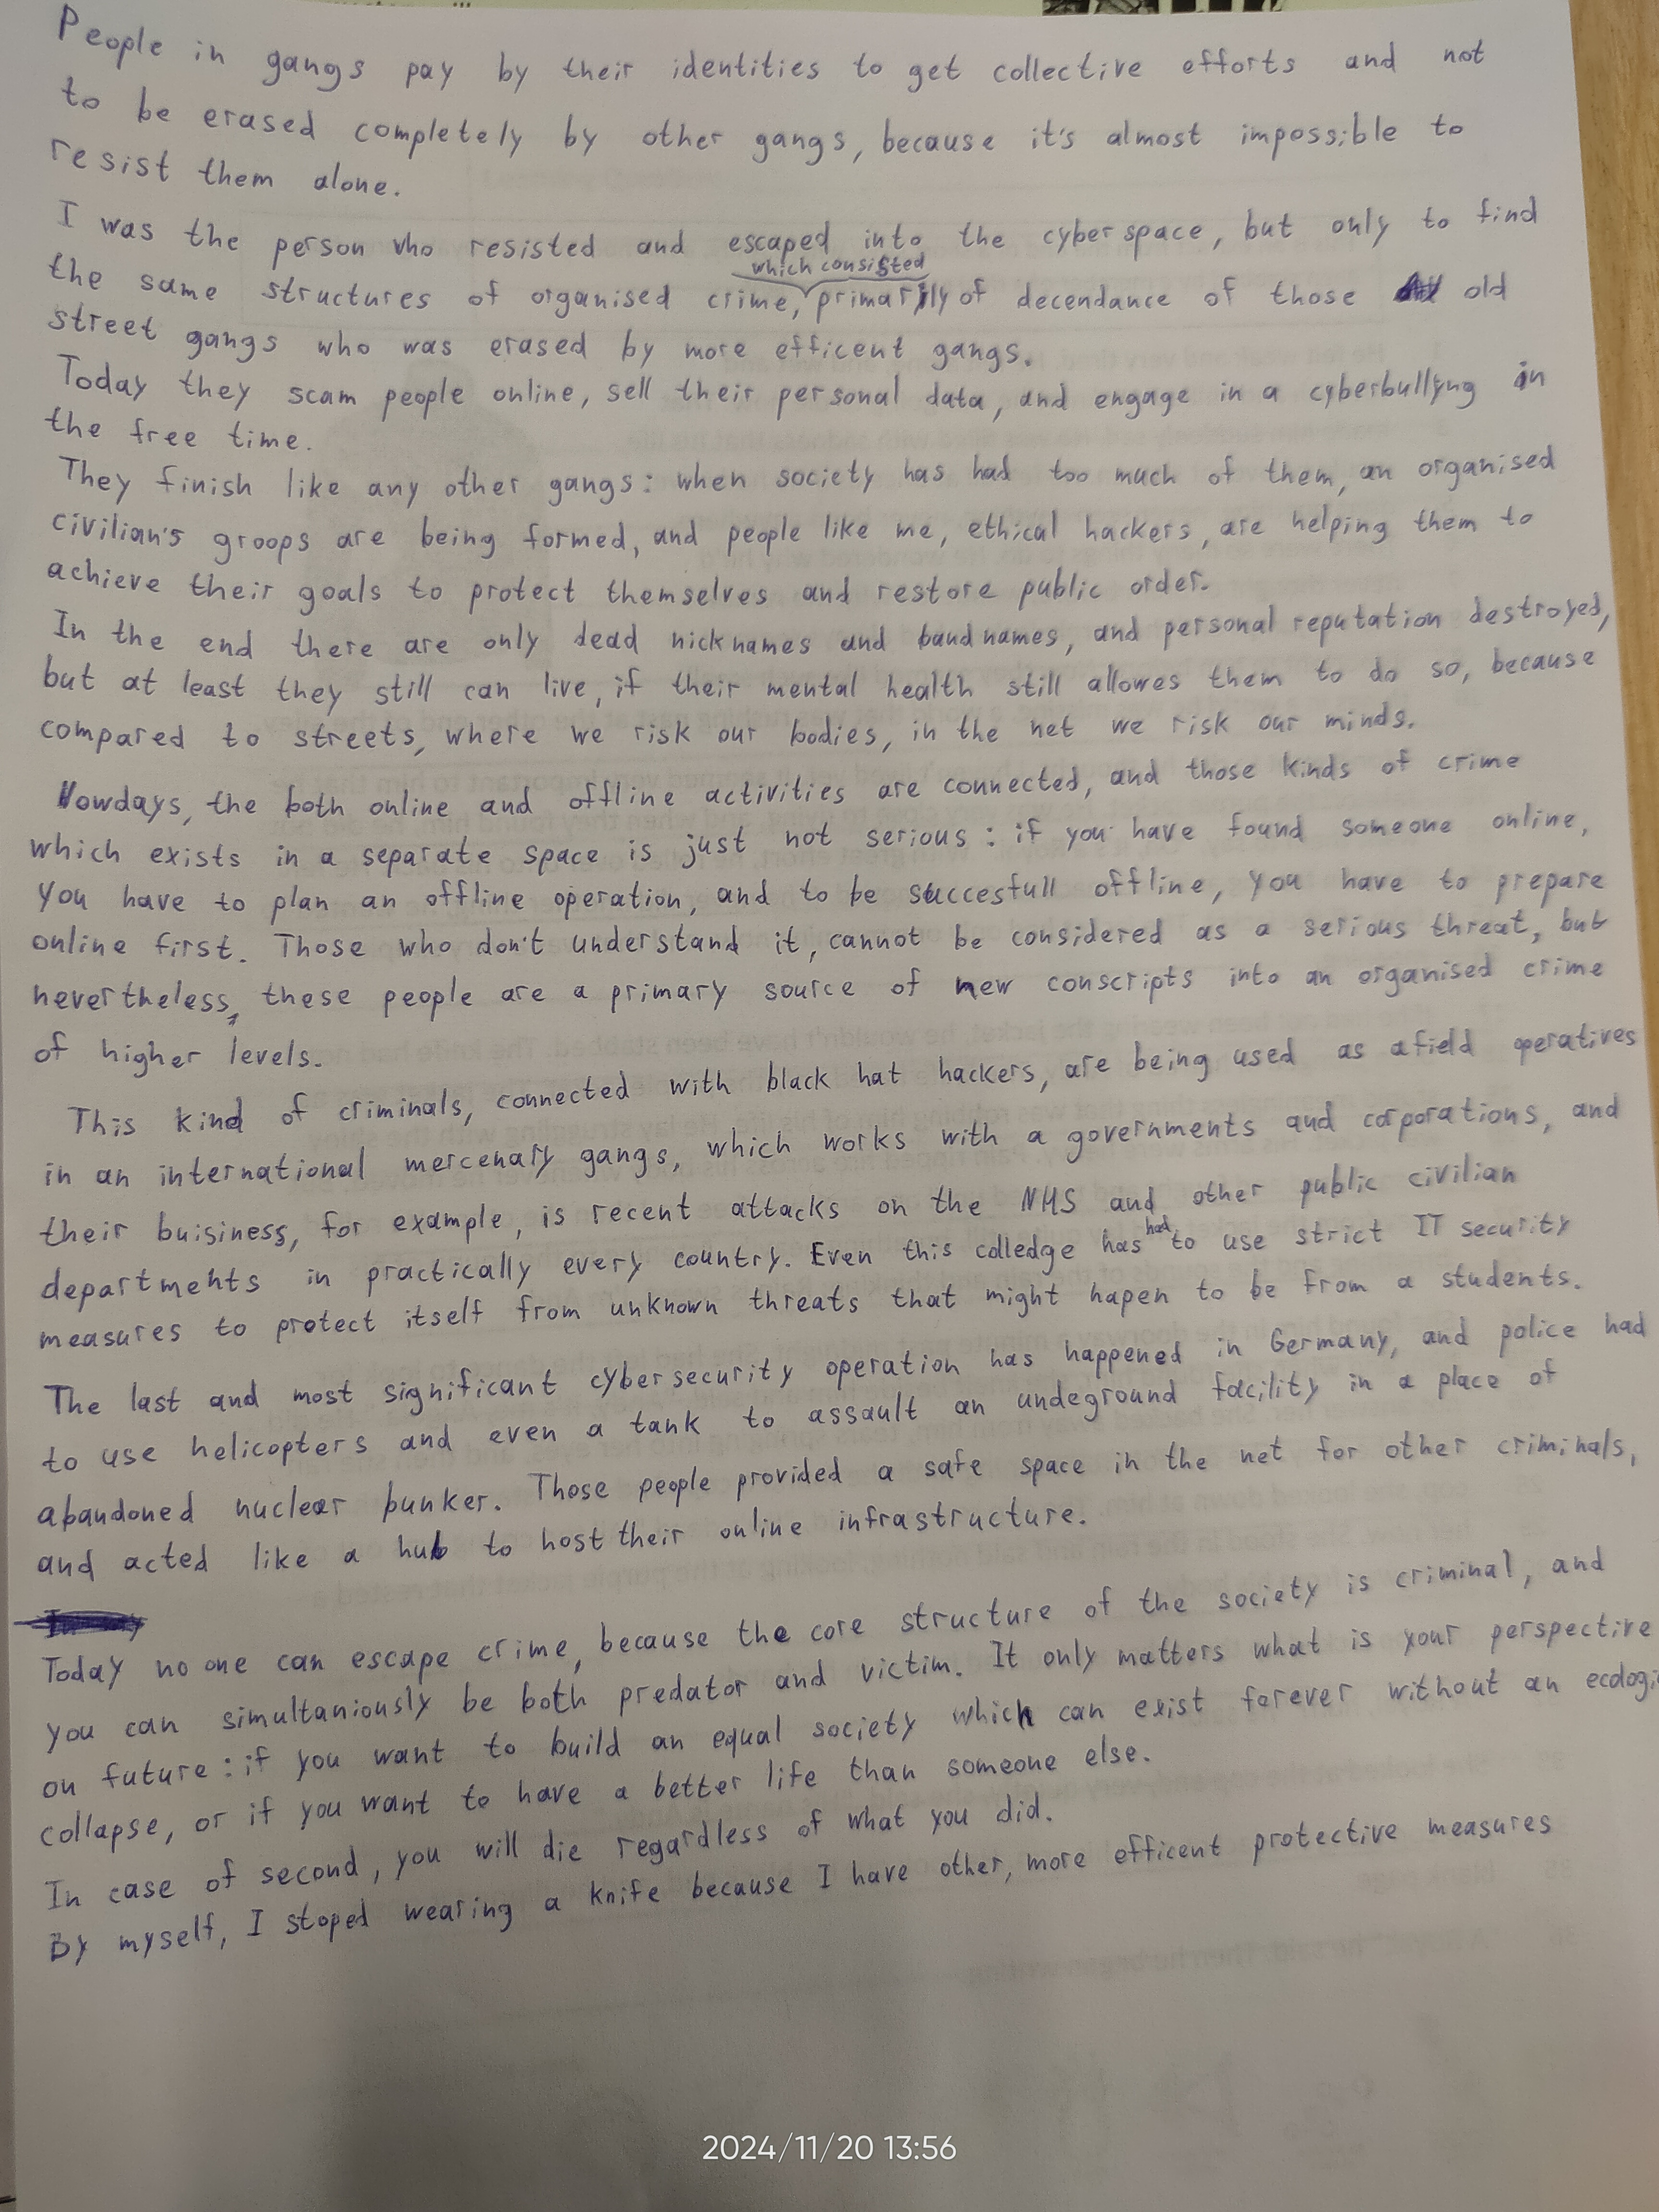 People in gangs pay by their identities to get collective efforts and not
to be erased completely by other gangs, because it's almost impossible to
resist them alone.
I was the person who resisted and escaped into the cyberspace, but only to find
which consisted
the same structures of organised crime, primarily of decendance of those old
street gangs who was erased by more efficent gangs.
Today they scam people online, sell their personal data, and engage in a cyberbullyng in
the free time.
They finish like any other gangs: when society has had too much of them, an organised
civilian's groops are being formed, and people like me, ethical hackers, are helping them to
achieve their goals to protect themselves and restore public order.
In the end there are only dead nicknames and bandnames, and personal reputation destroyed,
but at least they still can live, if their mental health still allowes them to do so, because
compared to streets, where we risk our bodies, in the net we risk our minds.
Nowdays, the both online and offline activities are connected, and those kinds of crime
which exists in a separate space is just not serious: if you have found someone online,
you have to plan an offline operation, and to be succesfull offline, you have to prepare
online first. Those who don't understand it, cannot be considered as a serious threat, but
nevertheless, these people are a primary source of new conscripts into an organised crime
of higher levels.
This kind of criminals, connected with black hat hackers, are being used as a field operatives
in an international mercenary gangs, which works with a governments and corporations, and
their buisiness, for example, is recent attacks on the NHS and other public civilian
departments in practically every country. Even this colledge has had to use strict IT security
measures to protect itself from unknown threats that might hapen to be from a students.
The last and most significant cybersecurity operation has happened in Germany, and police had
to use helicopters and even a tank to assault an undeground facility in a place of
abandoned nuclear bunker. Those people provided a safe space in the net for other criminals,
and acted like a hub to host their online infrastructure.
Today no one can escape crime, because the core structure of the society is criminal, and
you can simultaniously be both predator and victim. It only matters what is your perspective
on future: if you want to build an equal society which can exist forever without an ecologi
collapse, or if you want to have a better life than someone else.
In case of second, you will die regardless of what you did.
By myself, I stoped wearing a knife because I have other, more efficent protective measures
2024/11/20 13:56